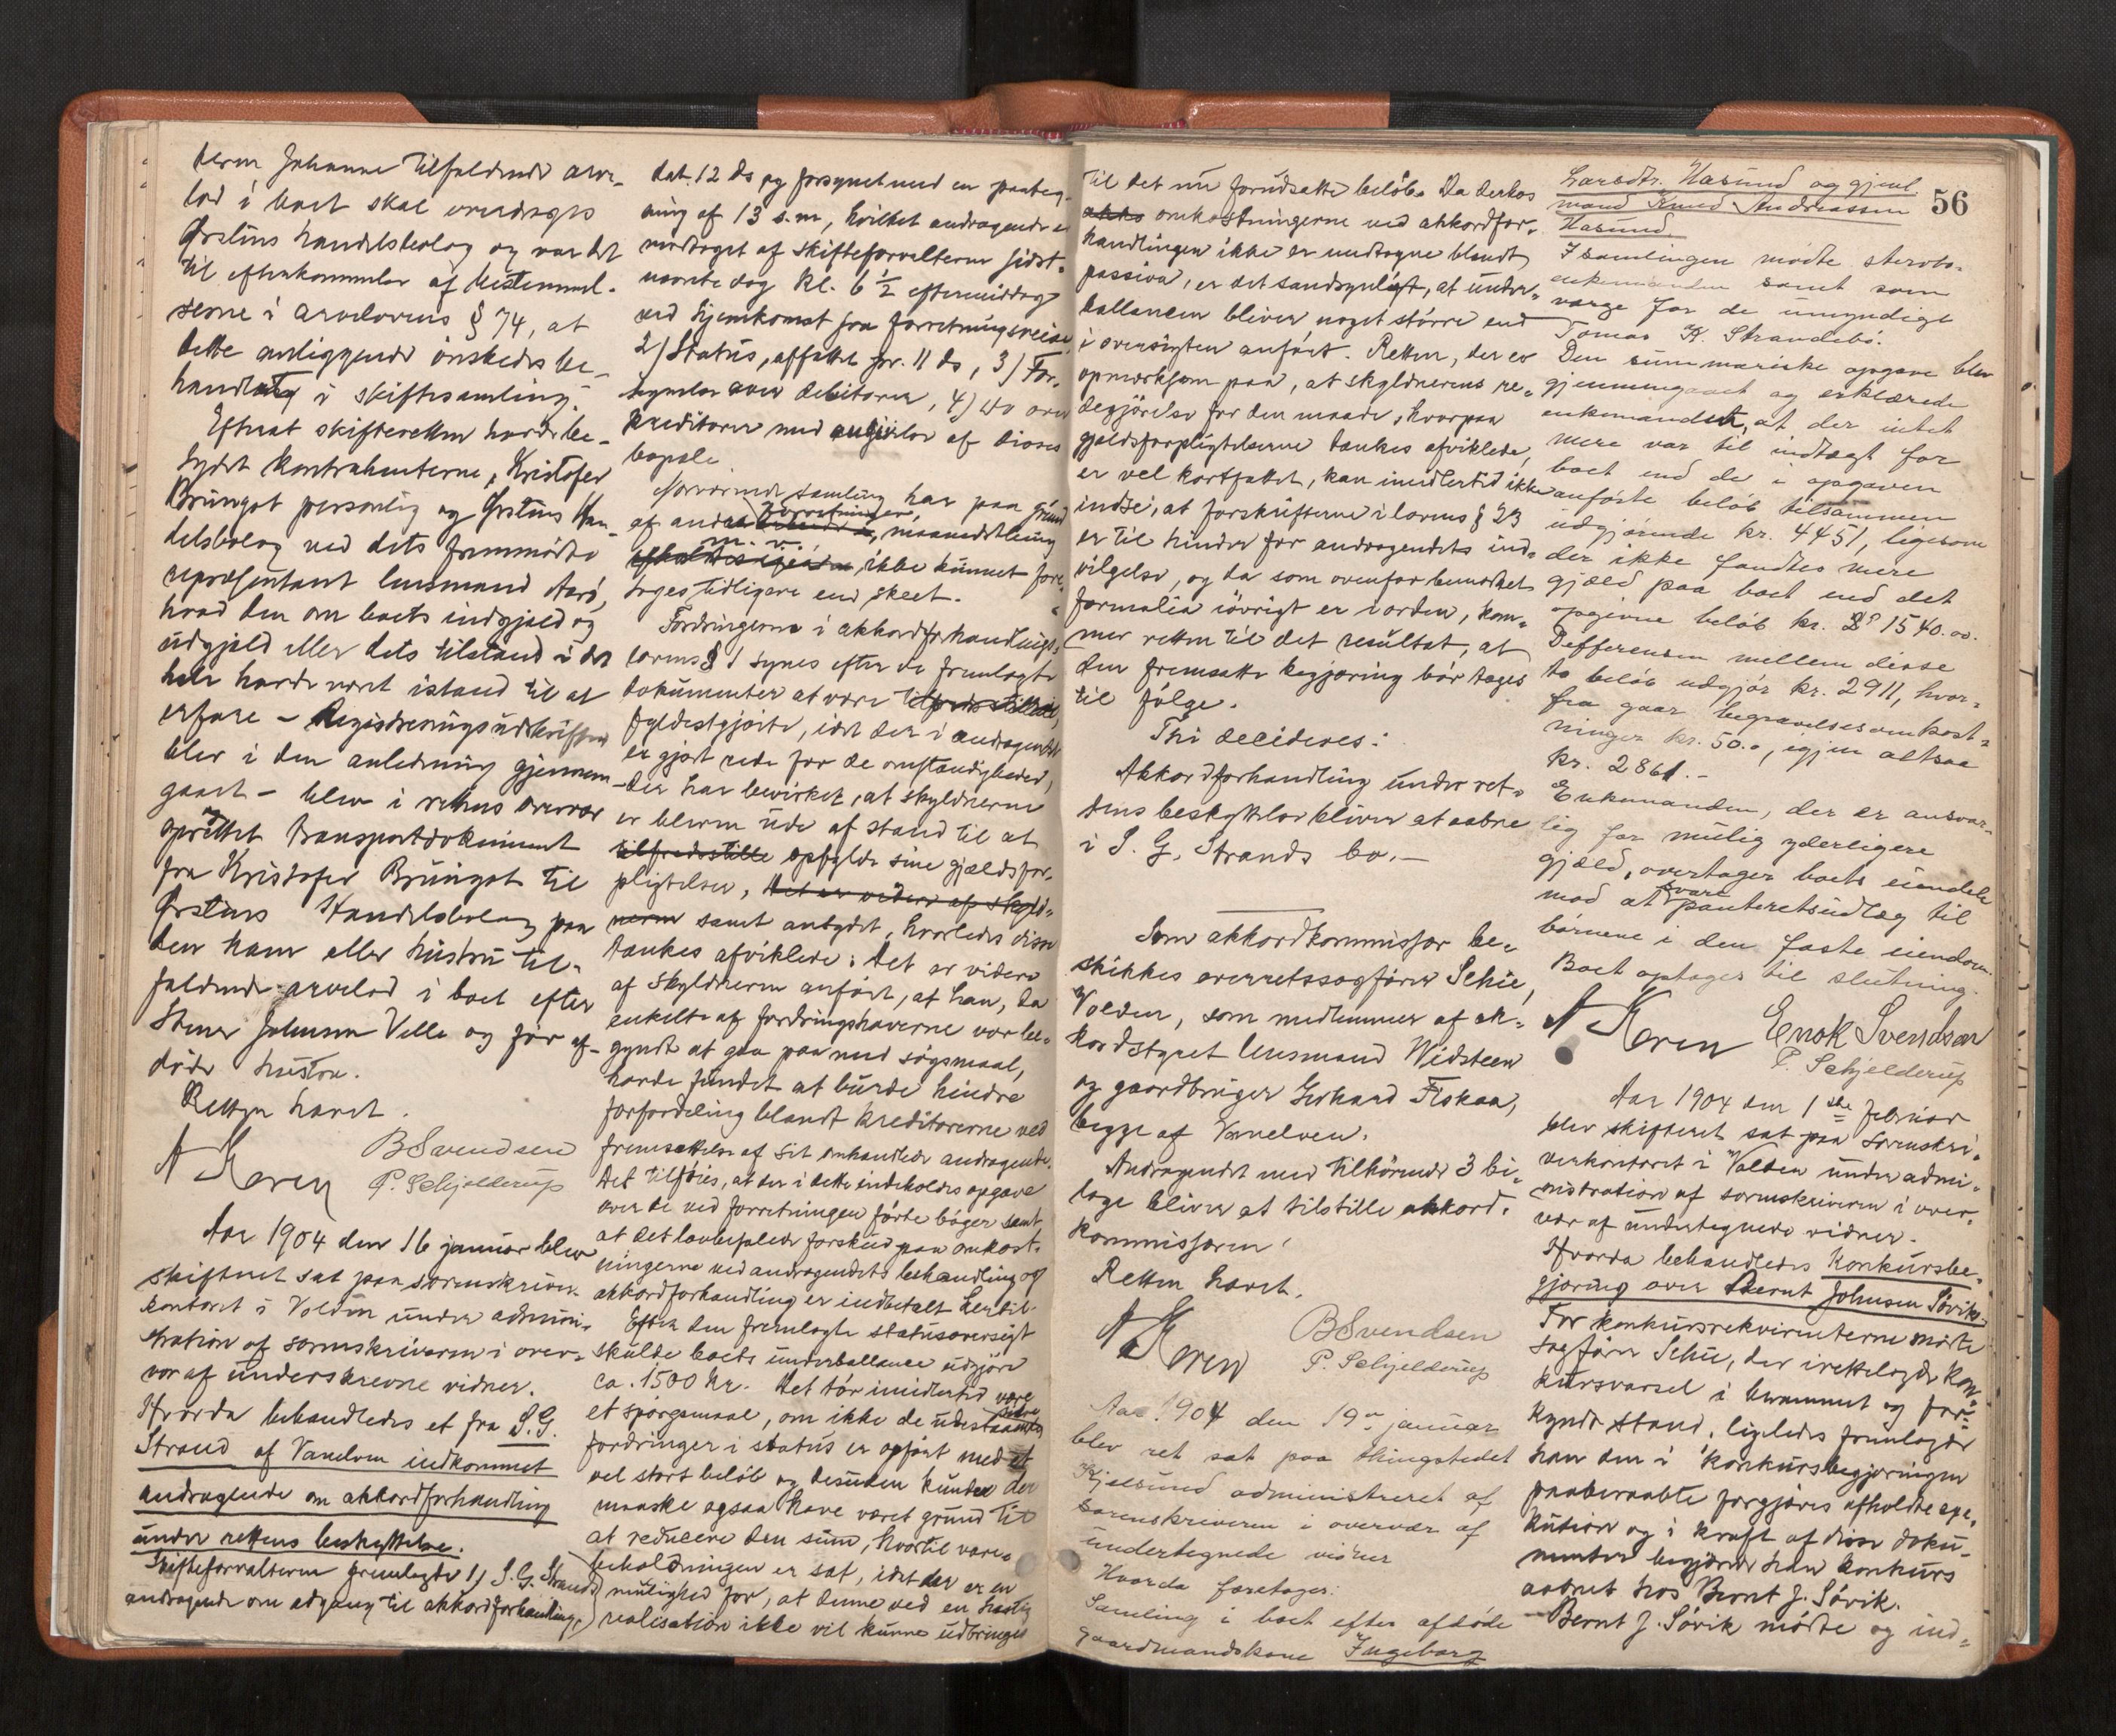 deren Johanne tilfaldende arve-
lod i boet skal overdrages
Ørstens handelsbolag og var det
til efterkommelse af bestemmel-
serne i arvelovens § 74, at
dette anliggende ønskedes be-
handlet i skiftesamling.
Efterat skifteretten havde be-
tydet kontrahenterne, Kristofer
Brungot personlig og Ørstens Han-
delsbolag ved dets fremmødte
repræsentant lensmand Aarø,
hvad den om boets indgjæld og
udgjæld eller dets tilstand i det
hele havde været istand til at
erfare – Registreringsudskriften
blev i den anledning gjennem-
gaaet – blev i rettens overvær
oprettet transportdokument
fra Kristofer Brungot til
Ørstens Handelsbolag paa
den ham eller hustru til-
faldende arvelod i boet efter
Stener Johnsen Velle og før af-
døde hustru.
Retten hævet.
A Koren BSvendsen
P. Schjelderup
Aar 1904 den 16 januar blev
skifteret sat paa sorenskriver-
kontoret i Volden under admini-
stration af sorenskriveren i over-
vær af underskrevne vidner.
Hvorda behandledes et fra S. G.
Strand af Vanelven indkommet
andragende om akkordforhandling
under rettens beskyttelse.
Skifteforvalteren fremlagde 1) S. G. Strands
andragende om adgang til akkordforhandling,
dat. 12 ds og forsynet med en paateg-
ning af 13 s. m., hvilket andragende er
modtaget af skifteforvalteren sidst-
nævnte dag kl. 6 1/2 eftermiddag
ved hjemkomst fra forretningsreise,
2) Status, affattet pr. 11 ds, 3) For-
tegnelse over debitorer, 4) do over
kreditorer med angivelse af disses
bopæle.
Nærværende samling har paa grund
af andre forretninger, maanedsthing
m. v. ikke kunnet fore-
tages tidligere end skeet.
Fordringerne i akkordforhandlings-
lovens § 1 synes efter de fremlagte
dokumenter at være tilfredsstillede,
fyldestgjorte, idet der i andragendet
er gjort rede for de omstændigheder,
der har bevirket, at skyldneren
er bleven ude af stand til at
tilfredsstille opfylde sine gjældsfor-
pligtelser, det er videre af skyld-
neren samt antydet, hvorledes disse
tænkes afviklede. Det er videre
af skyldneren anført, at han, da
enkelte af fordringshaverne var be-
gyndt at gaa paa med søgsmaal,
havde fundet at burde hindre
forfordeling blandt kreditorerne ved
fremsættelse af sit omhandlede andragende.
Det tilføies, at der i dette indeholdes opgave
over de ved forretningen førte bøger samt
at det lovbefalede forskud paa omkost-
ningerne ved andragendets behandling og
akkordforhandling er indbetalt hertil.
Efter den fremlagte statusoversigt
skulde boets underballance udgjøre
ca. 1500 kr. Det tør imidlertid være
et spørgsmaal, om ikke de udestaaende
fordringer i status er opført med et
vel stort beløb og desuden kunde der
maaske ogsaa have været grund til
at reducere den sum, hvortil vare-
beholdningen er sat, idet der er en
mulighed for, at denne ved en hastig
realisation ikke vil kunne udbringes
56
til det nu forudsatte beløb. Da derhos
omkostningerne ved akkordfor-
handlingen ikke er medtagne blandt
passiva, er det sandsynligt, at under-
ballancen bliver noget større end
i oversigten anført. Retten, der er
opmærksom paa, at skyldnerens re-
degjørelse for den maade, hvorpaa
gjældsforpligtelserne tænkes afviklede,
er vel kortfattet, kan imidlertid ikke
indse, at forskrifterne i lovens § 23
er til hinder for andragendets ind-
vilgelse, og da som ovenfor bemerket
formalia iøvrigt er i orden, kom-
mer retten til det resultat, at
den fremsatte begjæring bør tages
til følge.
Thi decideres:
Akkordforhandling under ret-
tens beskyttelse bliver at aabne
i S. G. Strands bo. –
Som akkordkommissær be-
skikkes overretssagfører Schie,
Volden, som medlemmer af ak-
kordstyret lensmand Widsteen
og gaardbruger Gerhard Fiskaa,
begge af Vanelven.
Andragendet med tilhørende 3 bi-
lage bliver at tilstille akkord-
kommissæren.
Retten hævet.
A Koren BSvendsen
P. Schjelderup
Aar 1904 den 19de januar
blev ret sat paa thingstedet
Kjelsund administreret af
sorenskriveren i overvær af
undertegnede vidner
Hvorda foretages:
Samling i boet efter afdøde
gaardmandskone Ingeborg
Larsdtr. Hasund og gjenl.
mand Knud Andreassen
Hasund.
I samlingen mødte stervbo-
enkemanden samt som
værge for de umyndige
Tomas K. Strandebø.
Den summariske opgave blev
gjennemgaaet og erklærede
enkemanden, at der intet
mere var til indtægt for
boet end de i opgaven
anførte beløb tilsammen
udgjørende kr. 4451, ligesom
der ikke fandtes mere
gjæld paa boet end det
opgivne beløb kr. 1540.00.
Defferensen mellem disse
to beløb udgjør kr. 2911, hvor-
fra gaar begravelsesomkost-
ninger kr. 50.0, igjen altsaa
kr. 2861. –
Enkemanden, der er ansvar-
lig for mulig yderligere
gjæld, overtager boets eiendele
mod at svare panteretsudlæg til
børnene i den faste eiendom.
Boet optages til slutning.
A Koren Enok Svendsen
P. Schjelderup
Aar 1904 den 1ste februar
blev skifteret sat paa sorenskri-
verkontoret i Volden under admi-
nistration af sorenskriveren i over-
vær af undertegnede vidner.
Hvorda behandledes Konkursbe-
gjæring over Bernt Johnsen Søvik.
For konkursrekvirenterne mødte
sagfører Schie, der irettelagde kon-
kursvarsel i berammet og for-
kyndt stand, ligeledes fremlagde
han den i konkursbegjæringen
paaberaabte forgjæves afholdte exe-
kution og i kraft af disse doku-
menter begjærede han konkurs
aabnet hos Bernt J. Søvik.
Bernt J. Søvik mødte og ind-